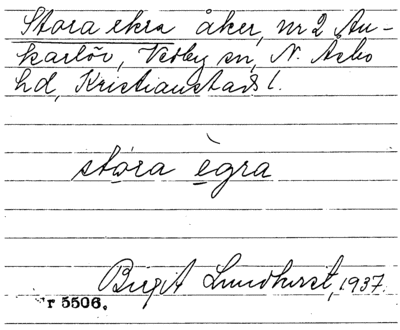 Stora ekra åker, nr 2 An-
karlöv, Vedby sn, N. Åsbo
hd, Kristianstads l.
stóra ègra
Birgit Lundkvist, 1937.
r 5506.